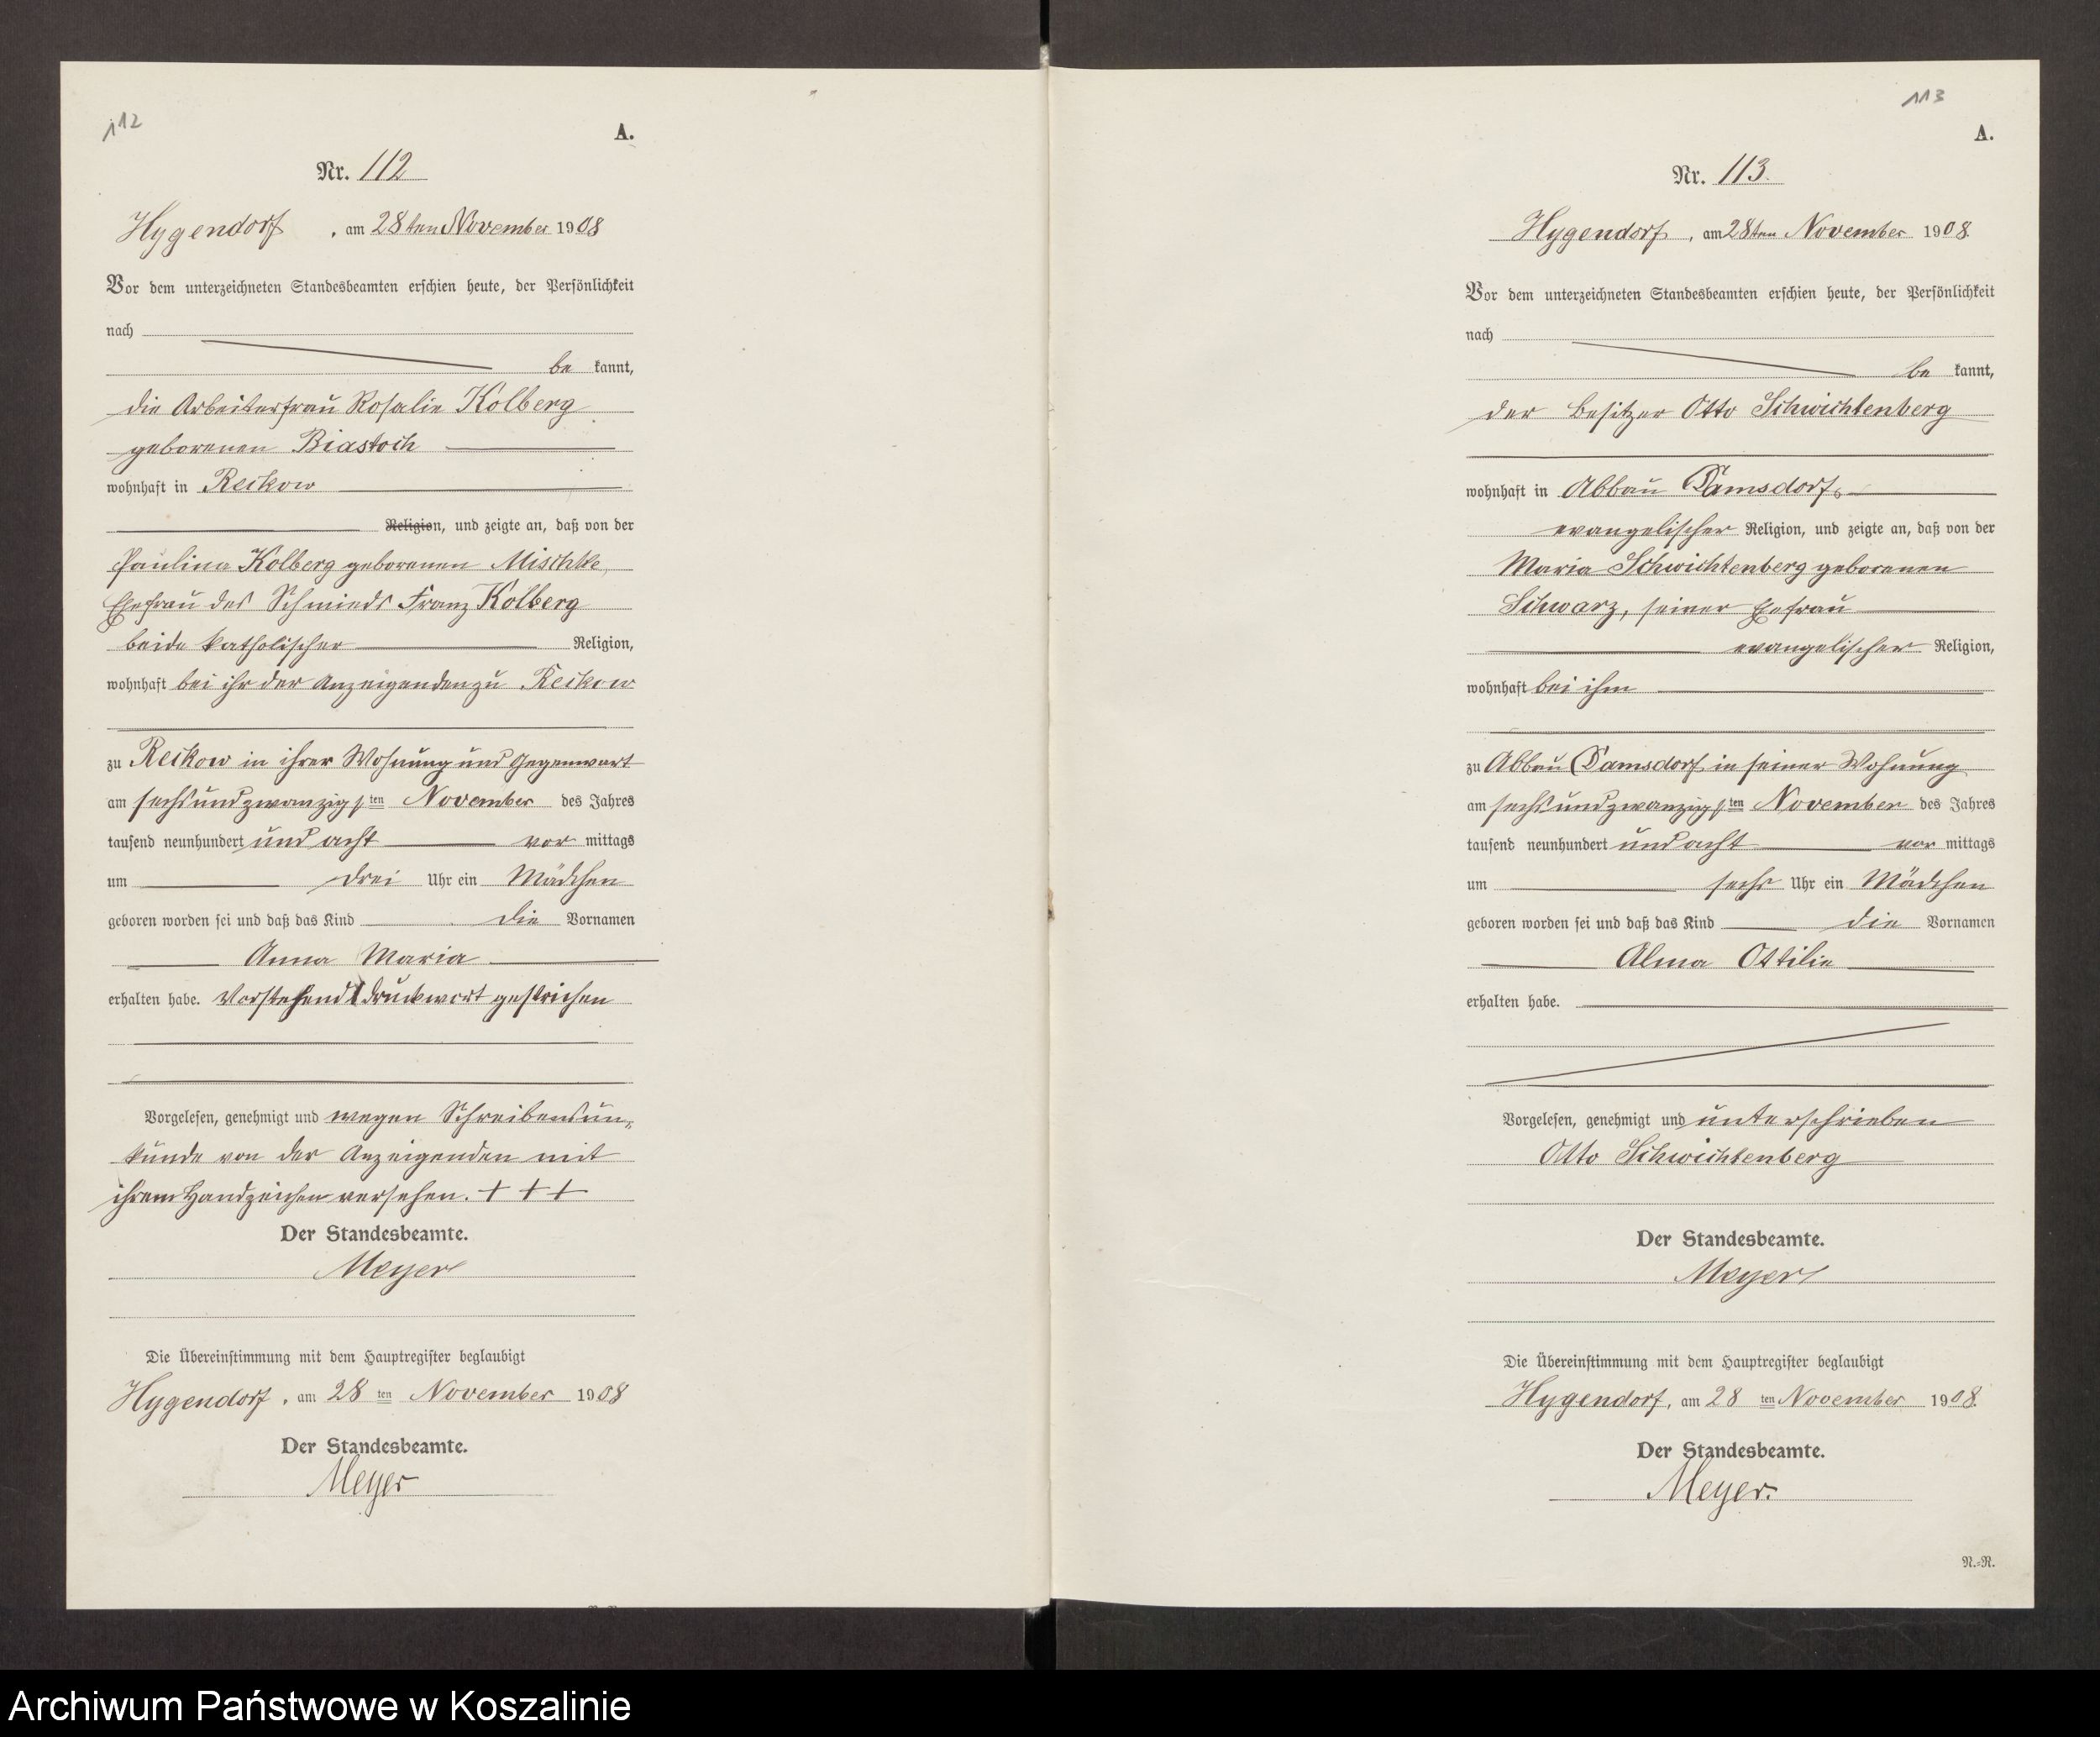 112
A.
Nr. 112
Hygendorf, am 28ten November 1908
Vor dem unterzeichneten Standesbeamten erschien heute, der Persönlichkeit
nach
be kannt,
die Arbeiterfrau Rosalie Kolberg
geborenen Biastoch
wohnhaft in Reckow
Religion, und zeigte an, daß von der
Paulina Kolberg geborenen Mischke,
Ehefrau des Schmieds Franz Kolberg
beide katholischer Religion,
wohnhaft bei ihr der Anzeigenden zu Reckow
zu Reckow in ihrer Wohnung und Gegenwart
am sechsundzwanzigsten November des Jahres
tausend neunhundert und acht vor mittags
um drei Uhr ein Mädchen
geboren worden sei und daß das Kind die Vornamen
Anna Maria
erhalten habe. Vorstehend 1 Druckwort gestrichen
Vorgelesen, genehmigt und wegen Schreibensun„
kunde von der Anzeigenden mit
ihrem Handzeichen versehen. + + +
Der Standesbeamte.
Meyer
Die Übereinstimmung mit dem Hauptregister beglaubigt
Hygendorf, am 28 ten November 1908
Der Standesbeamte.
Meyer
113
A.
Nr. 113.
Hygendorf, am 28ten November 1908.
Vor dem unterzeichneten Standesbeamten erschien heute, der Persönlichkeit
nach
be kannt,
der Besitzer Otto Schwichtenberg
wohnhaft in Abbau Damsdorf,
evangelischer Religion, und zeigte an, daß von der
Maria Schwichtenberg geborenen
Schwarz, seiner Ehefrau
evangelischer Religion,
wohnhaft bei ihm
zu Abbau Damsdorf in seiner Wohnung
am sechsundzwanzigsten November des Jahres
tausend neunhundert und acht vor mittags
um sechs Uhr ein Mädchen
geboren worden sei und daß das Kind die Vornamen
Alma Ottilie
erhalten habe.
Vorgelesen, genehmigt und unterschrieben
Otto Schwichtenberg
Der Standesbeamte.
Meyer
Die Übereinstimmung mit dem Hauptregister beglaubigt
Hygendorf, am 28 ten November 1908.
Der Standesbeamte.
Meyer.
N.-N.
Archiwum Państwowe w Koszalinie